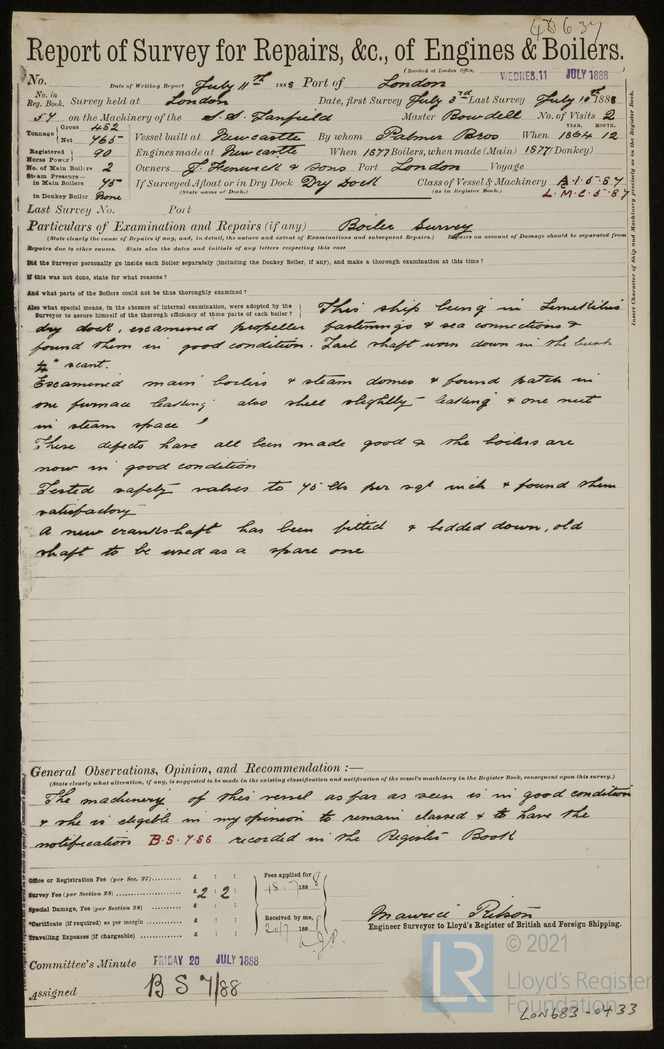 40637
Report of Survey for Repairs, &c., of Engines & Boilers.
(Received at London Office, WEDNES. 11 JULY 1888
No. Date of Writing Report July 11th 1888 Port of London
No. in Reg. Book. Survey held at London Date, first Survey July 3rd Last Survey July 10th 1888
54 on the Machinery of the S.S. Zanfield Master Bowdell No. of Visits 2
Tonnage Gross 482 Net 465 Vessel built at Newcastle By whom Palmer Bros When YEAR. 1864 MONTH. 12
Registered Horse Power 90 Engines made at Newcastle When 1877 Boilers, when made (Main) 1877 Donkey)
No. of Main Boilers 2 Owners J. Fenwick & Sons Port London Voyage
Steam Pressure in Main Boilers 45 If Surveyed Afloat or in Dry Dock Dry Dock Class of Vessel & Machinery A.1. 5.87
in Donkey Boiler None (State name of Dock.) (as in Register Book.) L.M.C. 5.87
Last Survey No. Port
Particulars of Examination and Repairs (if any) Boiler Survey
(State clearly the cause of Repairs if any, and, in detail, the nature and extent of Examinations and subsequent Repairs.) Repairs on account of Damage should be separated from
Repairs due to other causes. State also the dates and initials of any letters respecting this case
Did the Surveyor personally go inside each Boiler separately (including the Donkey Boiler, if any), and make a thorough examination at this time?
If this was not done, state for what reasons?
And what parts of the Boilers could not be thus thoroughly examined?
Also what special means, in the absence of internal examination, were adopted by the Surveyor to assure himself of the thorough efficiency of those parts of each boiler?
This ship being in Limekilns
dry dock, examined propeller fastenings & sea connections &
found them in good condition. Tail shaft worn down in the bush
¼" scant.
Examined main boilers & steam domes & found patch in
one furnace leaking also shell slightly leaking & one nut
in steam space
These defects have all been made good & the boilers are
now in good condition
Tested safety valves to 45 lbs per sqr inch & found them
satisfactory
A new crankshaft has been fitted & bedded down, old
shaft to be used as a spare one
Insert Character of Ship and Machinery precisely as in the Register Book.
General Observations, Opinion, and Recommendation :—
(State clearly what alteration, if any, is suggested to be made in the existing classification and notification of the vessel's machinery in the Register Book, consequent upon this survey.)
The machinery of this vessel as far as seen is in good condition
& she is eligible in my opinion to remain classed & to have the
notification B.S. 7.88 recorded in the Register Book
Office or Registration Fee (per Sec. 27) £ : :
Survey Fee (per Section 28) £ 2 : 2 :
Special Damage, Fee (per Section 28) £ : :
*Certificate (if required) as per margin £ : :
Travelling Expenses (if chargeable) £ : :
Fees applied for 18.7.1888
Received by me, 20/7 188
Maurice Ritson
Engineer Surveyor to Lloyd's Register of British and Foreign Shipping.
Committee's Minute FRIDAY 20 JULY 1888
Assigned B S 7/88
LR © 2021
Lloyd's Register
Foundation
LON683-0433